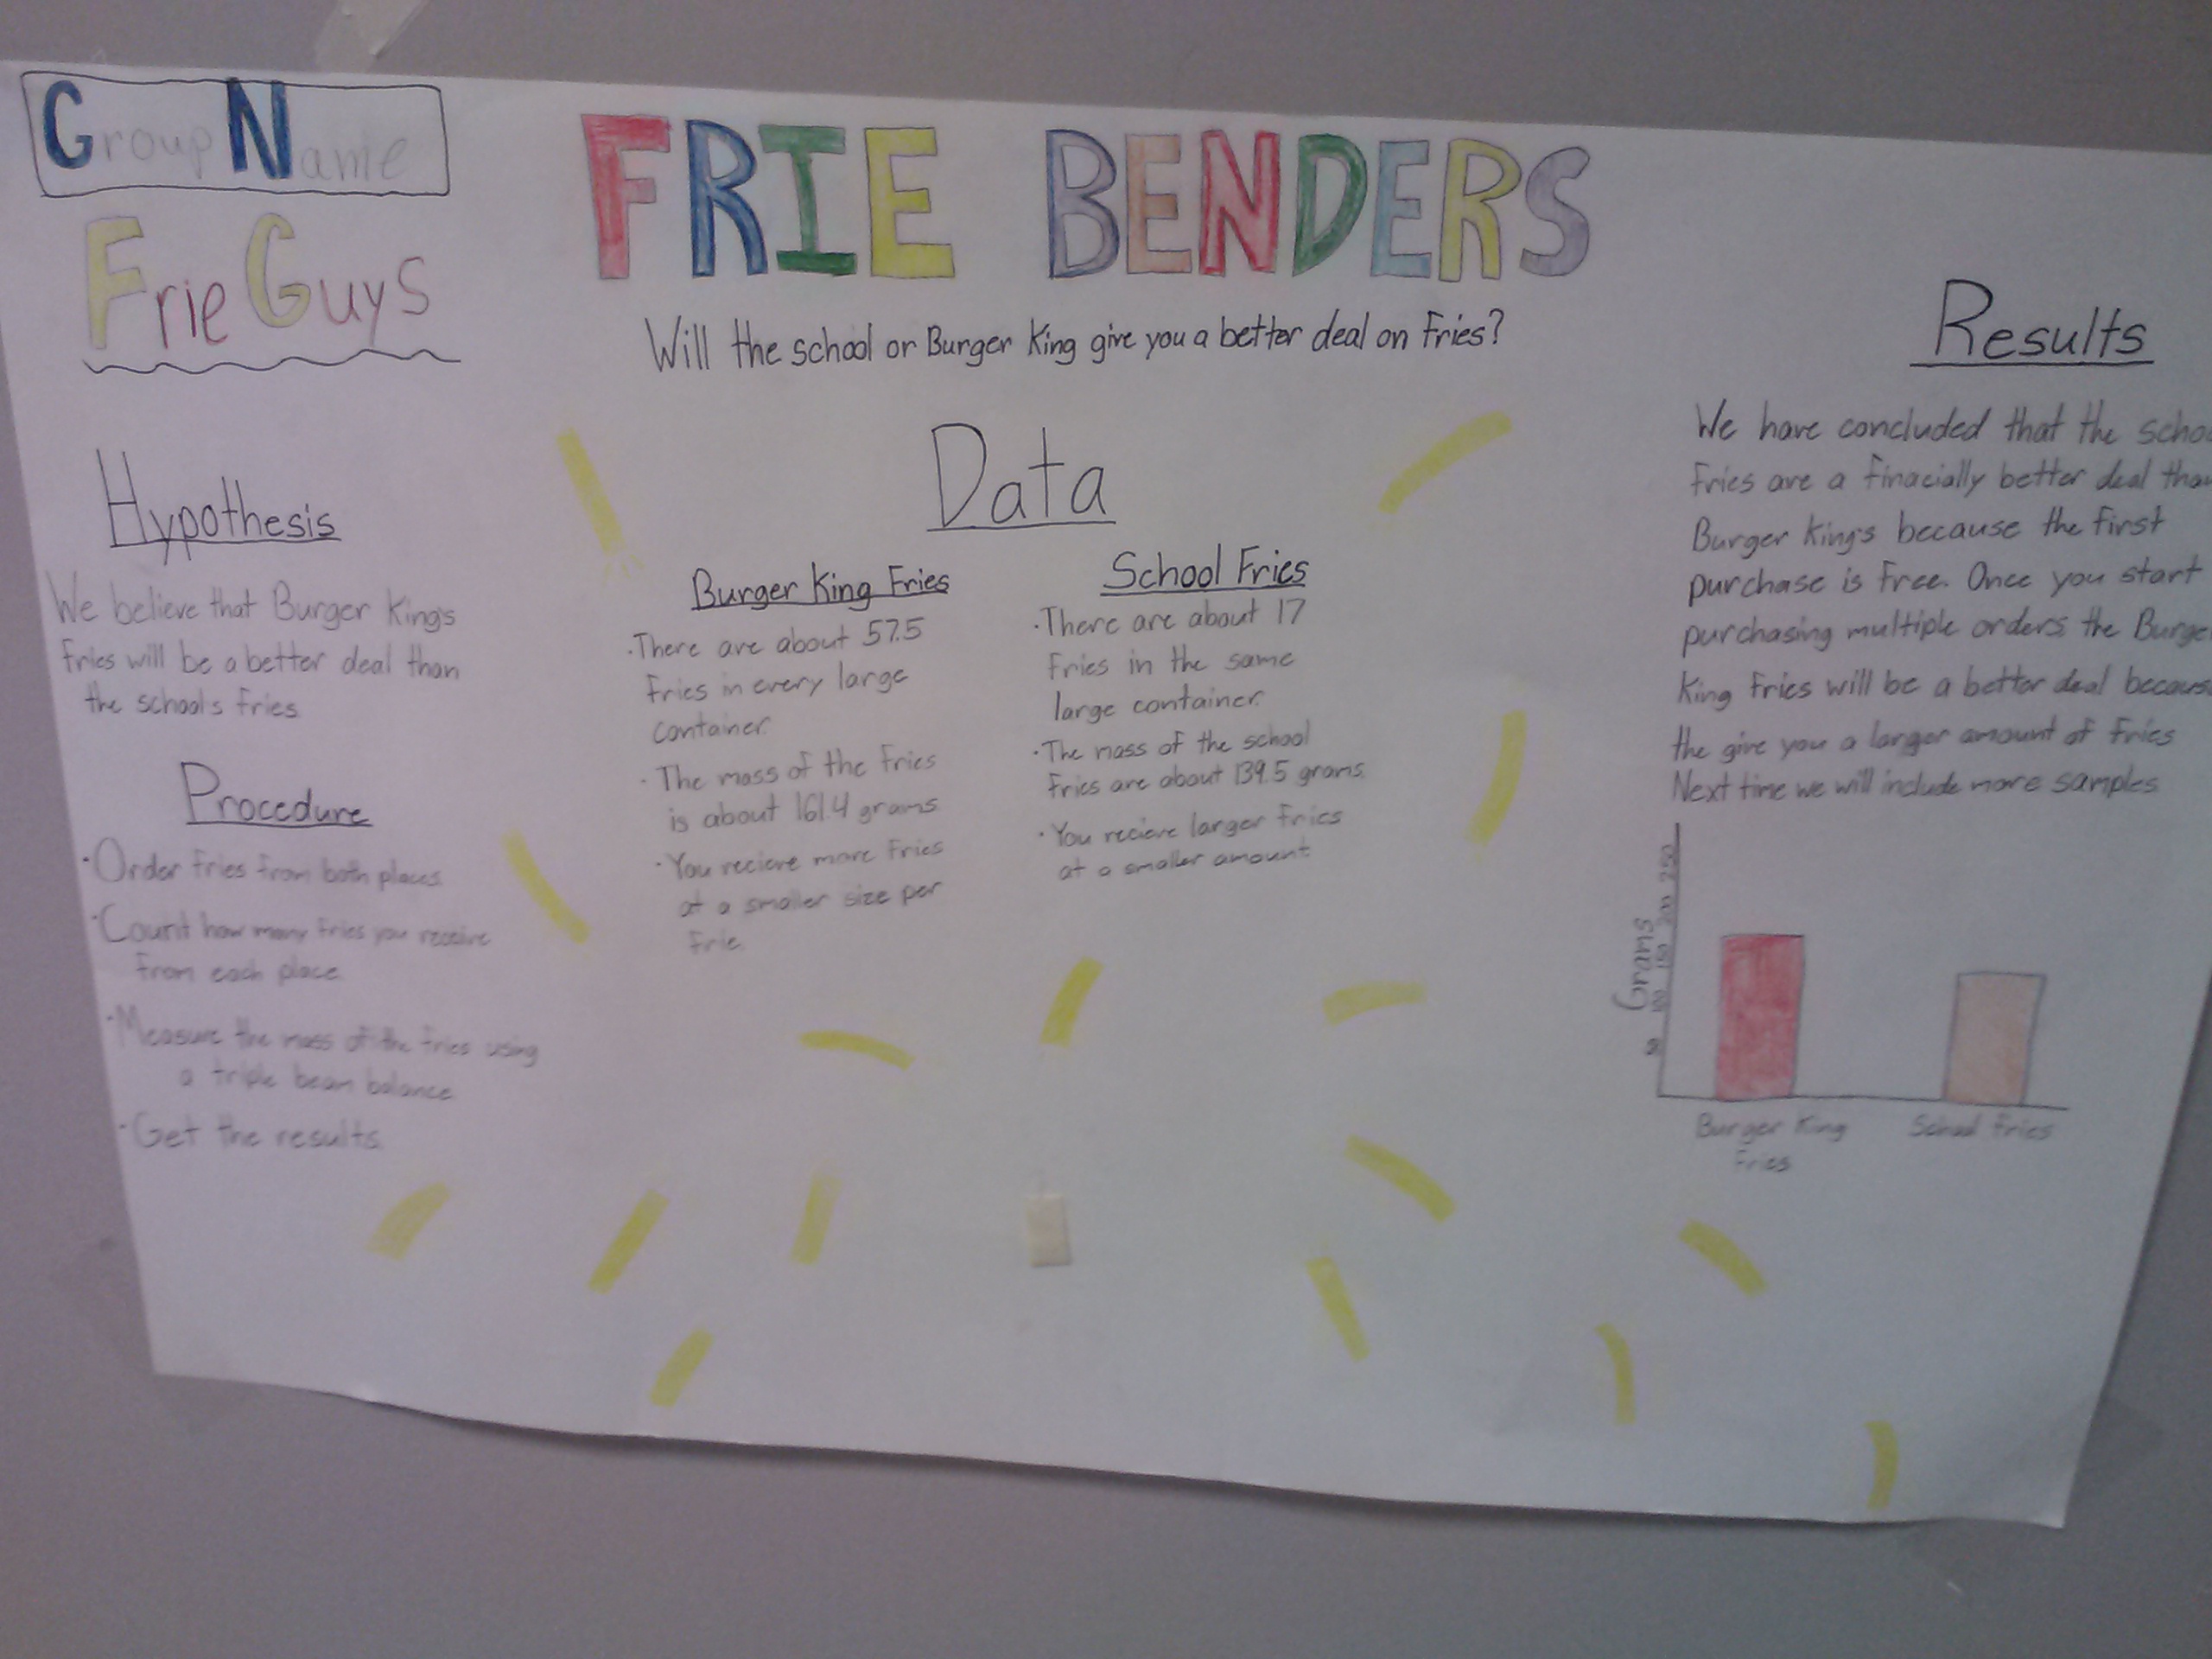 Group Name
Frie Guys
FRIE BENDERS
Will the school or Burger King give you a better deal on Fries?
Hypothesis
We believe that Burger King's
Fries will be a better deal than
the schools fries
Procedure
·Order fries from both places.
·Count how many fries you receive
from each place.
·Measure the mass of the fries using
a triple beam balance
·Get the results.
Data
Burger King Fries
·There are about 57.5
Fries in every large
container.
·The mass of the fries
is about 161.4 grams
·You recieve more fries
at a smaller size per
frie.
School Fries
·There are about 17
Fries in the same
large container.
·The mass of the school
Fries are about 139.5 grams.
·You recieve larger fries
at a smaller amount.
Results
We have concluded that the schoo
fries are a finacially better deal than
Burger King's because the first
purchase is free. Once you start
purchasing multiple orders, the Burge
King fries will be a better deal becaus
the give you a larger amount of fries
Next time we will include more samples
250
200
150
100
50
Grams
Burger King
Fries
School Fries